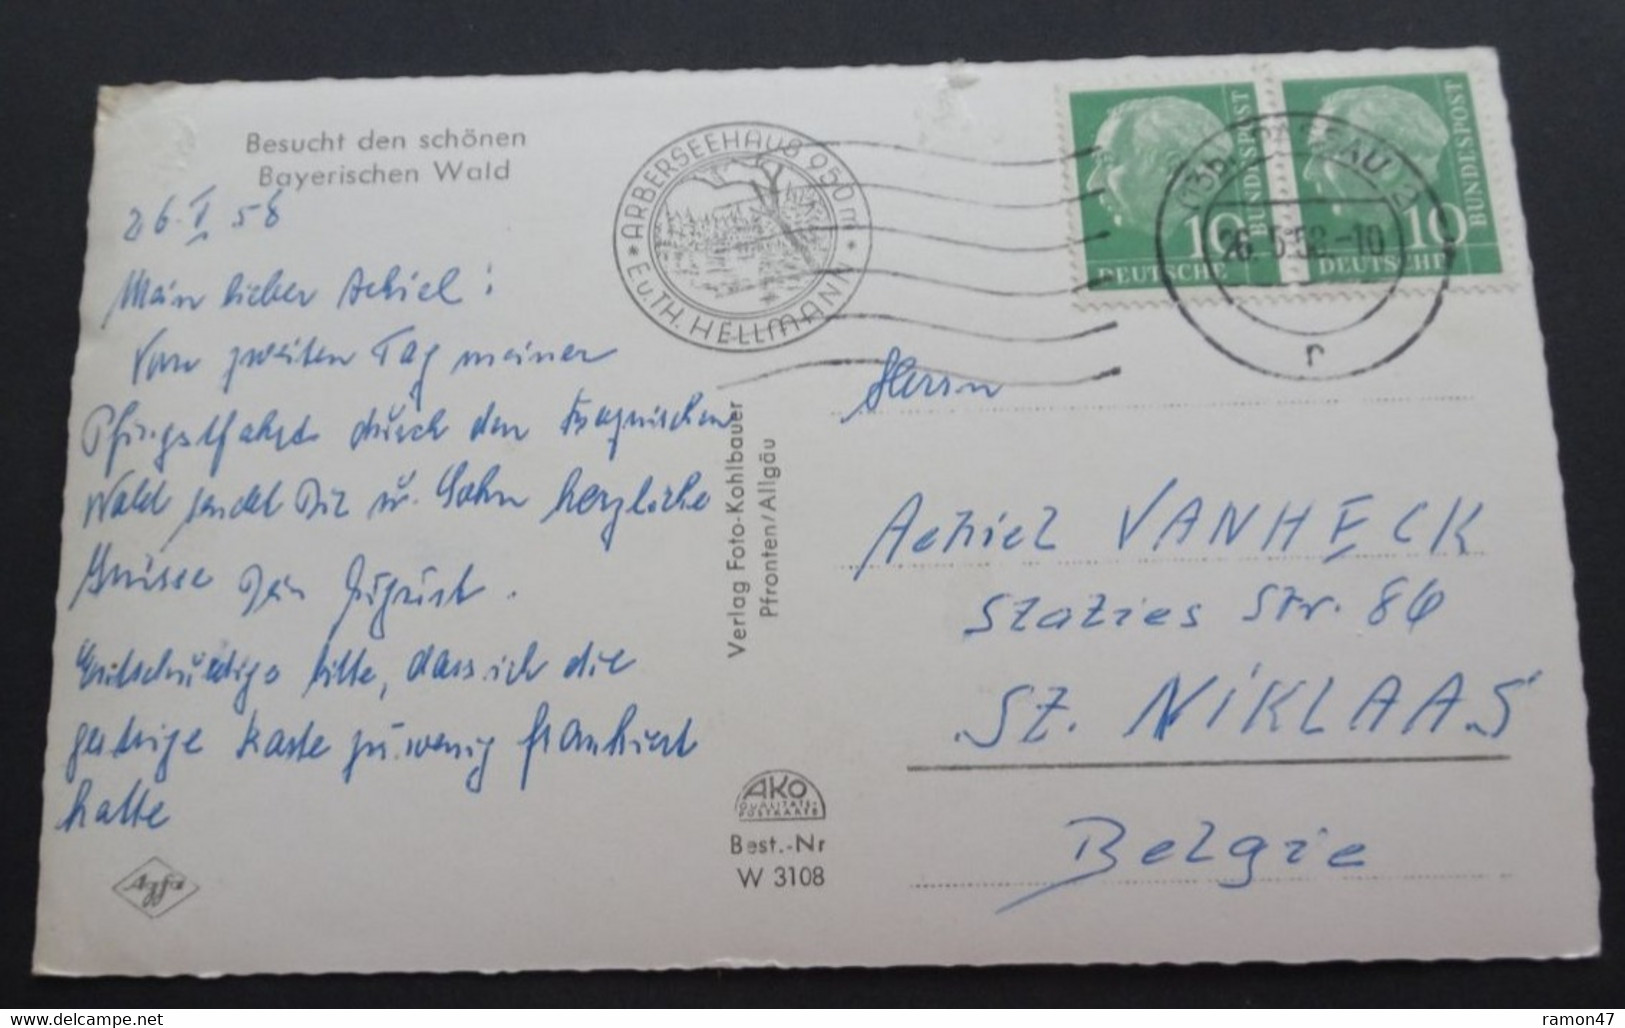 Besucht den schönen
Bayerischen Wald
26. V 58
Mein lieber Achiel!
Vom zweiten Tag meiner
Pfingstfahrt durch den Bayrischen
Wald sendet Dir u. Sohn herzliche
Grüsse Dein August.
Entschuldige bitte, dass ich die
gestrige Karte zu wenig frankiert
hatte
Agfa
ARBERSEEHAUS 950 m
* E.u.TH. HELLMANN *
Verlag Foto-Kohlbauer
Pfronten/Allgäu
AKO
QUALITÄTS-
POSTKARTE
Best.-Nr
W 3108
10
DEUTSCHE
BUNDESPOST
10
DEUTSCHE
BUNDESPOST
(13b) PASSAU 2
26.5.58.-10
r
Herrn
Achiel VANHECK
Staties Str. 86
St. NiKLAAS
Belgie
ramon47